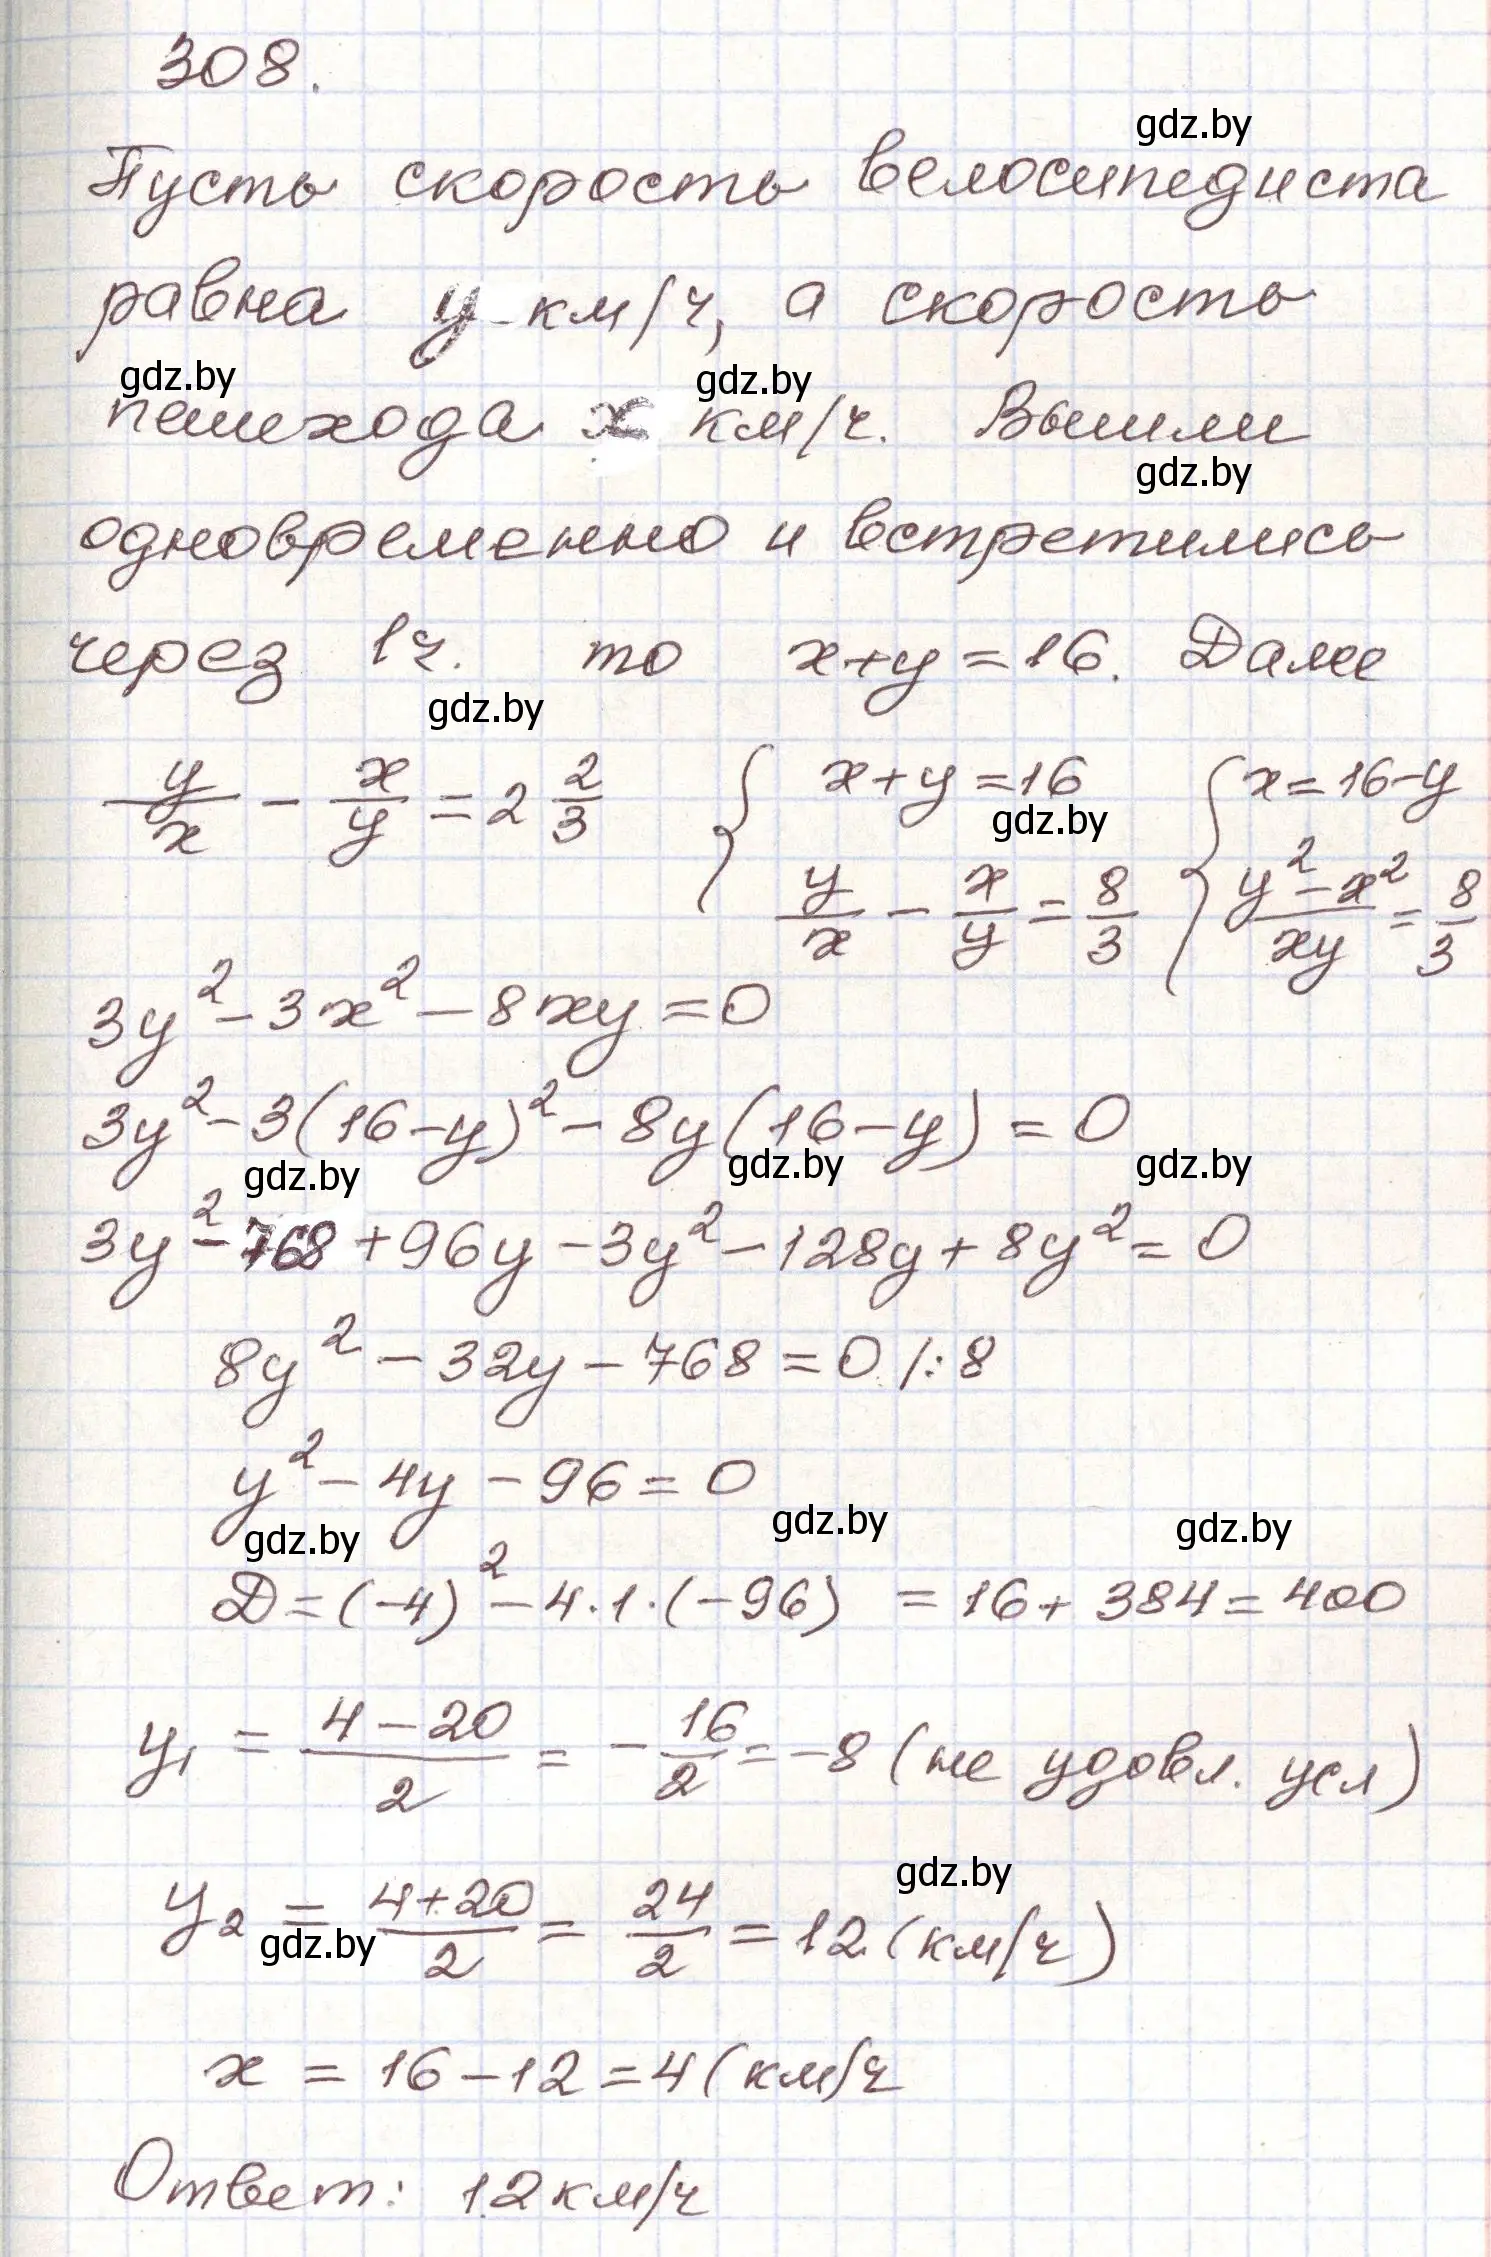 308.
gdz.by
Пусть скорость велосипедиста
равна y км/ч, а скорость
gdz.by gdz.by
пешехода x км/ч. Вышли
gdz.by
одновременно и встретились
через 1ч. то x+y=16. Далее
gdz.by
y/x - x/y = 2 2/3 { x+y=16 { x=16-y
gdz.by
y/x - x/y = 8/3 (y²-x²)/xy = 8/3
3y²-3x²-8xy=0
3y²-3(16-y)²-8y(16-y)=0
gdz.by gdz.by gdz.by
3y²-768+96y-3y²-128y+8y²=0
8y²-32y-768=0 /:8
y²-4y-96=0
gdz.by gdz.by gdz.by
Д=(-4)²-4·1·(-96) = 16+384=400
y₁ = (4-20)/2 = -16/2 = -8 (не удовл. усл)
gdz.by
y₂ = (4+20)/2 = 24/2 = 12 (км/ч)
gdz.by
x = 16-12=4 (км/ч
Ответ: 12км/ч